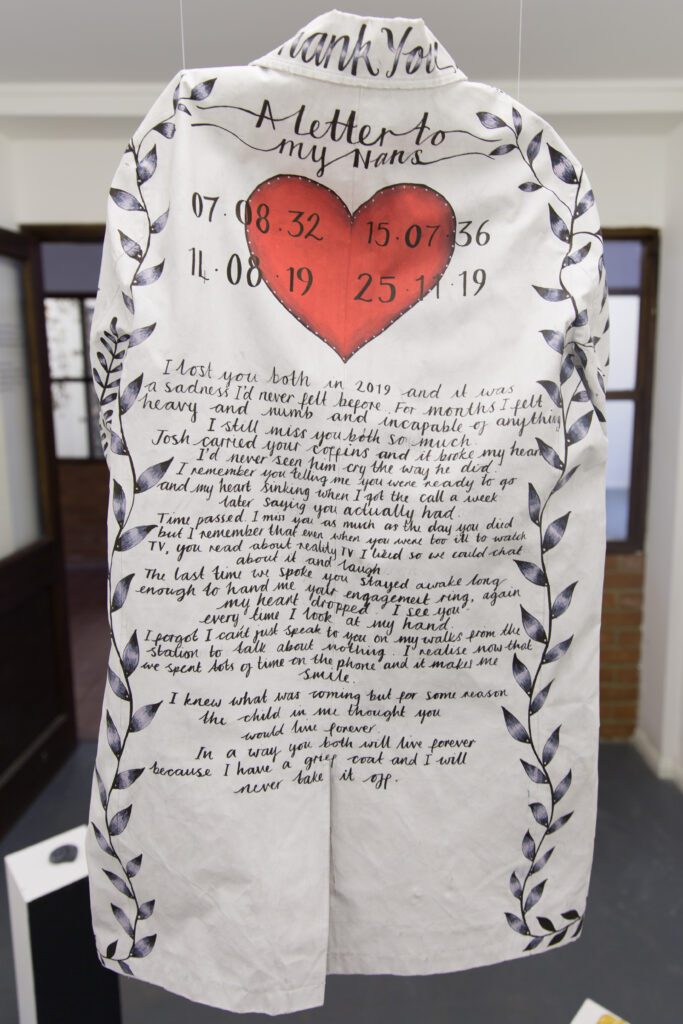 Thank You
A Letter to
my Nans
07.08.32 15.07.36
14.08.19 25.11.19
I lost you both in 2019 and it was
a sadness I'd never felt before. For months I felt
heavy and numb and incapable of anything
I still miss you both so much.
Josh carried your coffins and it broke my heart
I'd never seen him cry the way he did.
I remember you telling me you were ready to go
and my heart sinking when I got the call a week
later saying you actually had.
Time passed. I miss you as much as the day you died
but I remember that even when you were too ill to watch
TV, you read about reality TV I liked so we could chat
about it and laugh
The last time we spoke you stayed awake long
enough to hand me your engagement ring, again
my heart dropped. I see you
every time I look at my hand.
I forgot I can't just speak to you on my walks from the
station to talk about nothing. I realise now that
we spent lots of time on the phone and it makes me
smile.
I knew what was coming but for some reason
the child in me thought you
would live forever.
In a way you both will live forever
because I have a grief coat and I will
never take it off.